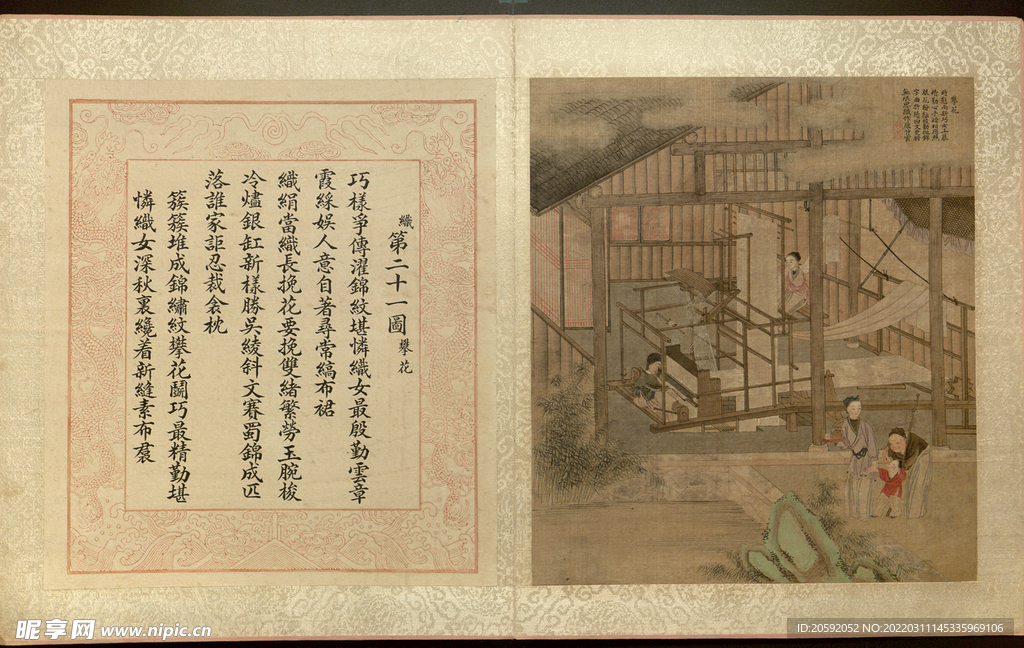 織第二十一圖攀花
巧樣爭傳濯錦紋堪憐織女最殷勤雲章
霞綵娛人意自著尋常縞布裙
織絹當織長挽花要挽雙緒繁勞玉腕梭
冷燼銀缸新樣勝吳綾斜文賽蜀錦成匹
落誰家詎忍裁衾枕
簇簇堆成錦繡紋攀花鬭巧最精勤堪
憐織女深秋裏纔着新縫素布裠
攀花
昵享网 www.nipic.cn
ID:20592052 NO:20220311145335969106